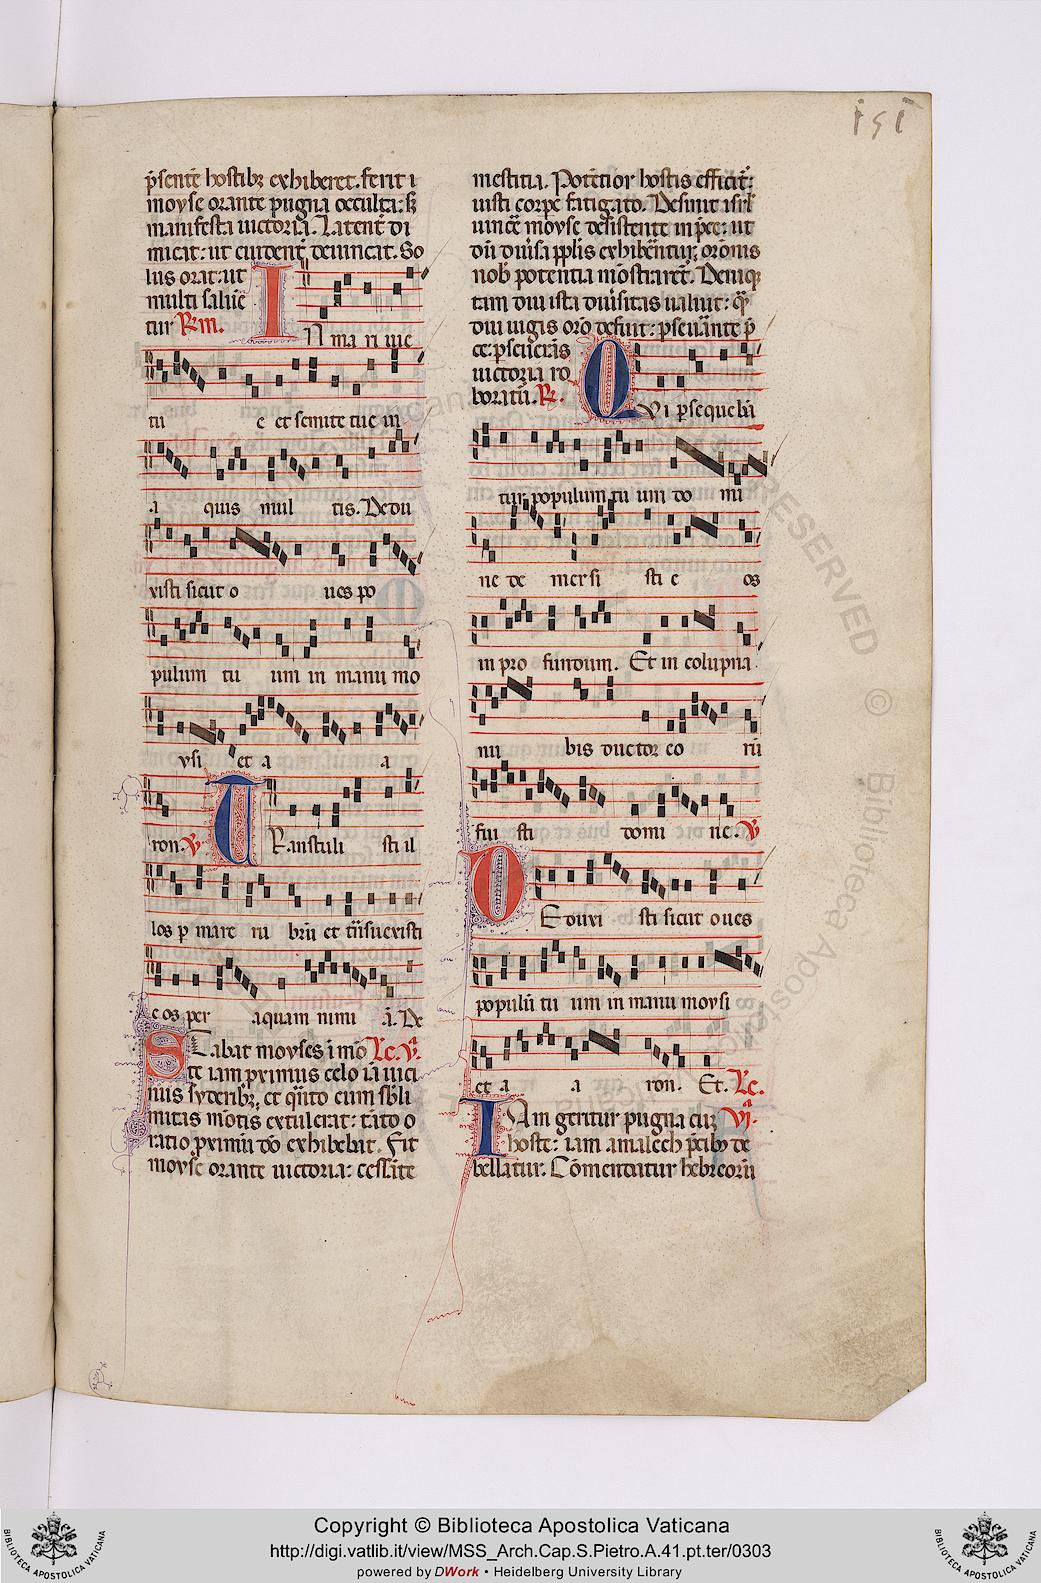 151
p̄sente hostibꝫ exhiberet. ferit i
moyse orante pugna occulta: sꝫ
manifesta uictoria. Latent̄ di
micat: ut euident̄ deuincat. So
lus orat: ut
multi salue
tur R̄m.
IN ma ri uie
tu e et semite tue in
a quis mul tis. Dedu
xisti sicut o ues po
pulum tu um in manu mo
ysi et a a
ron. V̄ TRanstuli sti il
los p mare ru brū et trāsuexisti
e os per aquam nimi ā. De
STabat moyses ī mō Lc. v.ᵃ
te iam proximus celo iā uici
nus syderibꝫ, et qūto eum subli
mitas mōtis extulerat: tāto o
ratio proximū dō exhibebat. Fit
moyse orante uictoria: cessāte
mestitia. Potētior hostis efficit̄:
iusti corpe fatigato. Desinit isrl̄
uincē moyse desistente in p̄ce: ut
dū diuisa pplis exhibentur, orōnis
nob̄ potentia mōstraret̄. Deniqꝫ
tam diu ista diuisitas ualuit: qͣ
diu iugis orō defuit: pseuānte p̄
ce: pseuerās
uictoria ro
borata. R̄.
QVi psequebā
tur populum tu um do mi
ne de mersi sti e os
in pro fundum. Et in colupna
nu bis ductor eo rū
fui sti domi ne. V̄
DEduxi sti sicut oues
populū tu um in manu moysi
et a a ron. Et. Lc.
IAm geritur pugna cū vi.ᵃ
hoste: iam amalech p̄cibꝫ de
bellatur. Cōmendatur hebreorū
RESERVED © Biblioteca Apostolica Vaticana
BIBLIOTECA APOSTOLICA VATICANA
Copyright © Biblioteca Apostolica Vaticana
http://digi.vatlib.it/view/MSS_Arch.Cap.S.Pietro.A.41.pt.ter/0303
powered by DWork • Heidelberg University Library
BIBLIOTECA APOSTOLICA VATICANA